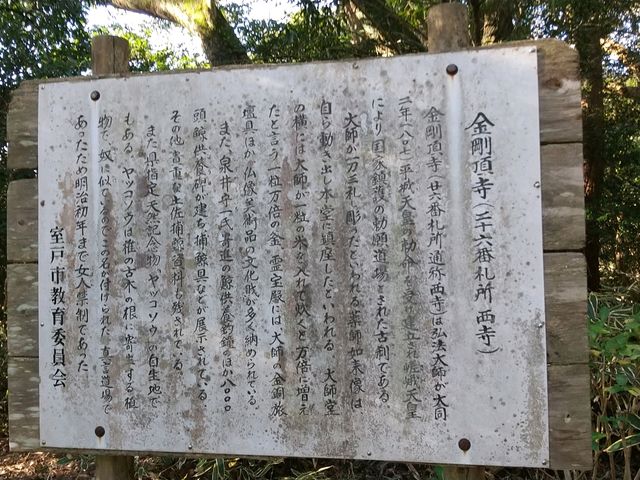 金剛頂寺(二十六番札所 西寺)
金剛頂寺(廿六番札所通称西寺)は弘法大師が大同
二年(八〇七)平城天皇の勅命を受け建立 嵯峨天皇
により国家鎮護の勅願道場とされた古刹である
大師が一刀三礼で彫ったといわれる薬師如来像は
自ら動き出し本堂に鎮座したといわれる 大師堂
の横には大師が一粒の米を入れて炊くと万倍に増え
たと言う一粒万倍の釜 霊宝殿には、大師の金銅旅
壇具ほか仏像美術品の文化財が多く納められている。
また、泉井守一氏寄進の鯨供養釣鐘のほか八〇〇〇
頭鯨供養碑が建ち捕鯨具などが展示されている
その他 貴重な土佐捕鯨資料も残されている。
また県指定天然記念物、ヤッコソウの自生地で
もある ヤッコソウは椎の古木の根に寄生する植
物で 奴に似ているのでこの名が付けられた。真言道場で
あったため明治初年まで女人禁制であった
室戸市教育委員会